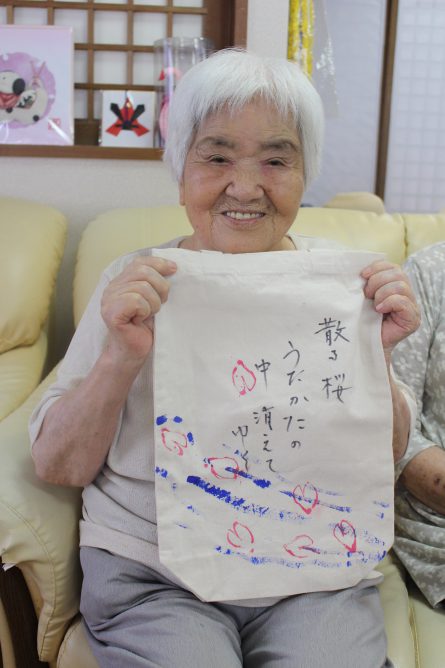 散る桜
うたかたの
中消えて
ゆく